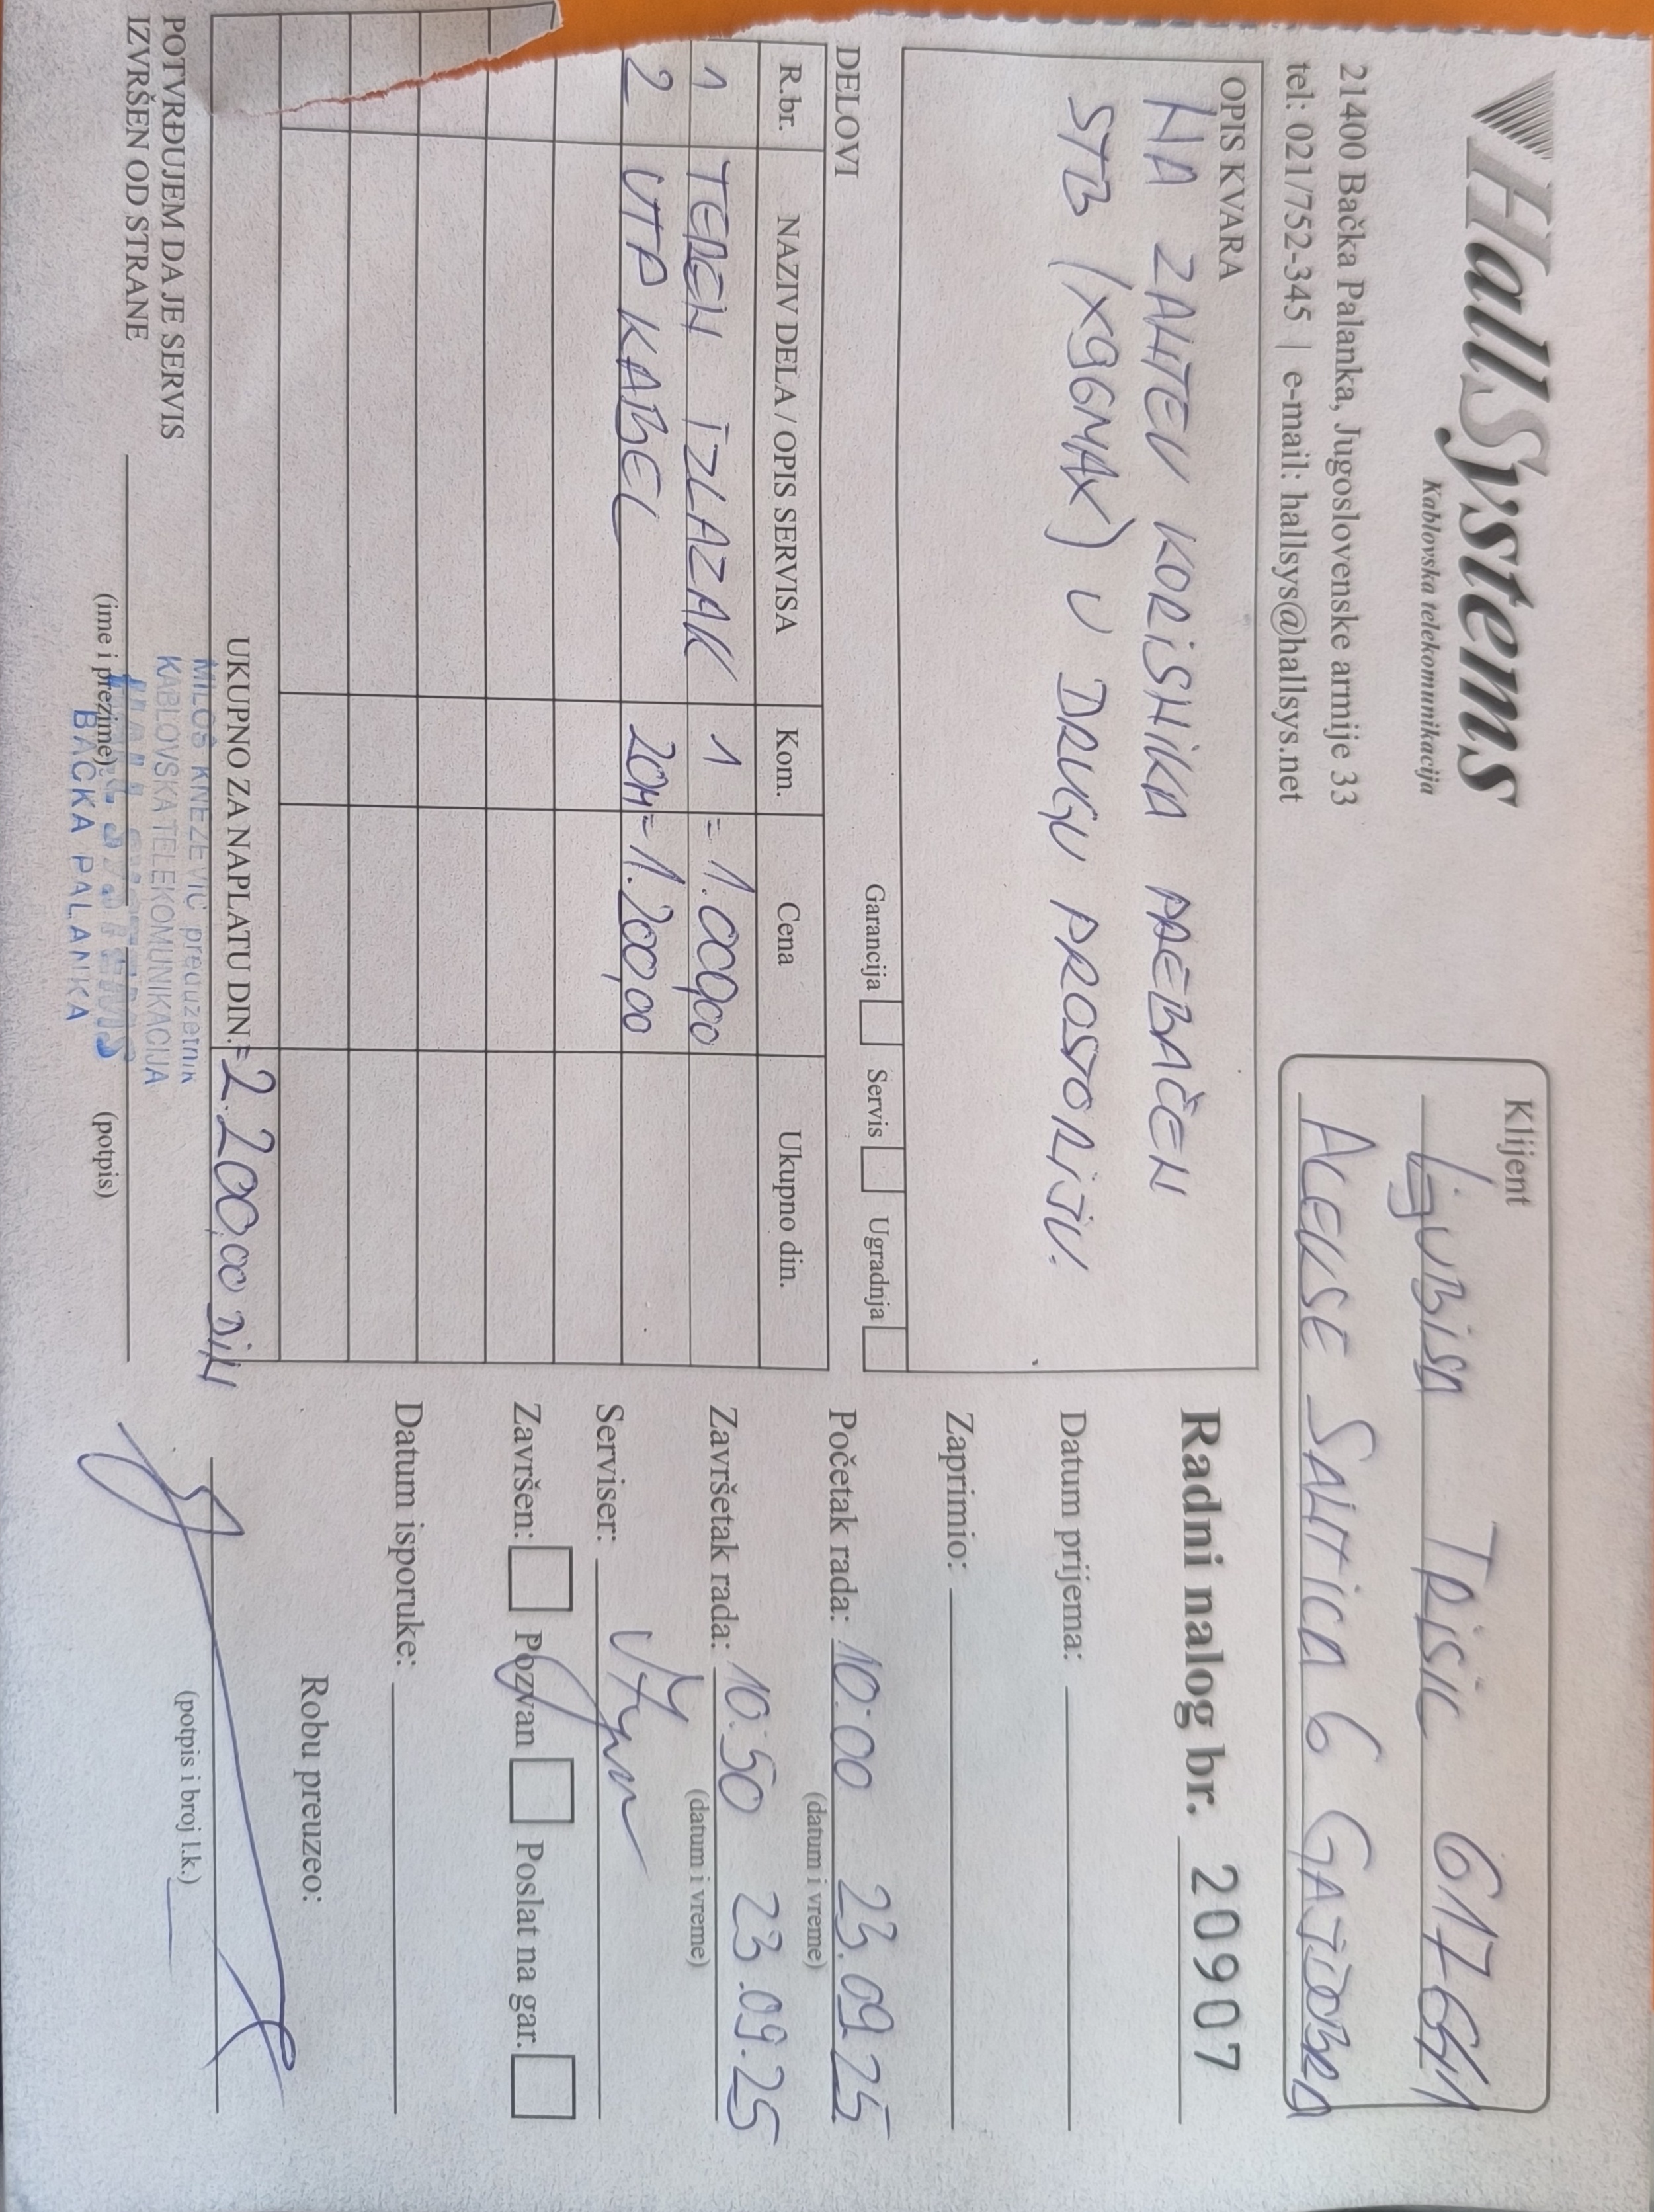 HallSystems
Kablovska telekomunikacija
21400 Bačka Palanka, Jugoslovenske armije 33
tel: 021/752-345 | e-mail: hallsys@hallsys.net
Klijent
Ljubisa Trisic 617641
Alekse Santica 6 Gajdobra
OPIS KVARA
НА ZAHTEV KORISHIKA PREBAČEN
STB (X96MAX) U DRUGU PROSTORIJU.
Garancija Servis Ugradnja
DELOVI
R.br. NAZIV DELA / OPIS SERVISA Kom. Cena Ukupno din.
1 TEREN IZLAZAK 1 =1.000,00
2 UTP KABEL 20M =1.200,00
UKUPNO ZA NAPLATU DIN. =2.200,00 DIN
Radni nalog br. 20907
Datum prijema:
Zaprimio:
Početak rada: 10:00 23.09.25
(datum i vreme)
Završetak rada: 10:50 23.09.25
(datum i vreme)
Serviser:
Završen: Pozvan Poslat na gar.
Datum isporuke:
Robu preuzeo:
(potpis i broj l.k.)
POTVRĐUJEM DA JE SERVIS
IZVRŠEN OD STRANE
(ime i prezime) (potpis)
MILOŠ KNEŽEVIĆ preduzetnik
KABLOVSKA TELEKOMUNIKACIJA
HALL SYSTEMS
BAČKA PALANKA